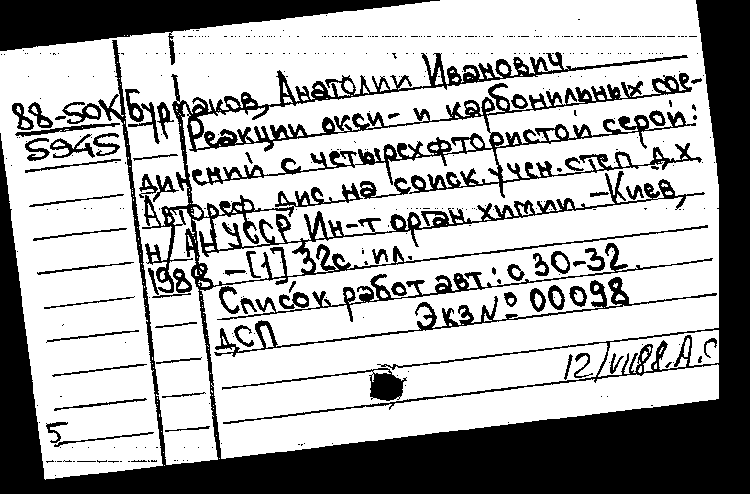 88-50К Бурмаков, Анатолий Иванович.
5945 Реакции окси- и карбонильных сое-
динений с четырехфтористой серой:
Автореф. дис. на соиск. учен. степ. д.х.
н/АН УССР, Ин-т орган. химии. -Киев,
1988. -[1] 32с.:ил.
Список работ авт.: с.30-32.
ДСП Экз № 00098
12/VII88.А.С
5